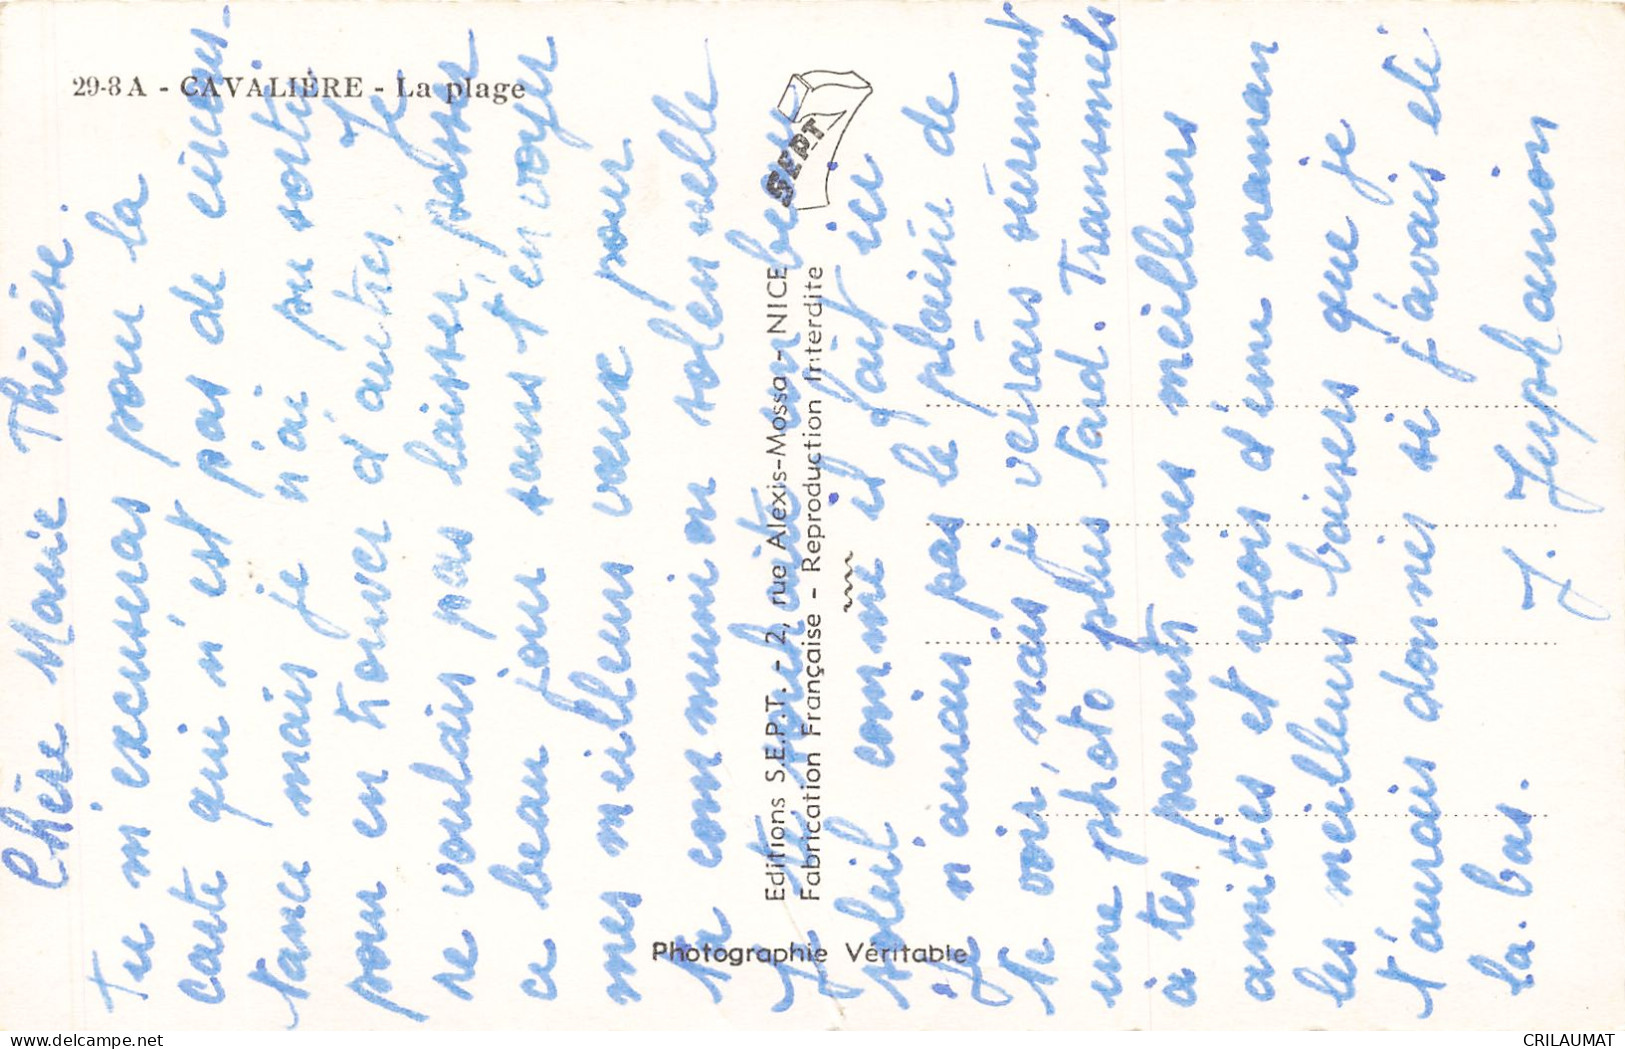 29-8 A - CAVALIÈRE - La plage
Chère Marie Thérèse
Tu m'excuseras pour la
carte qui n'est pas de circons-
tance mais je n'ai pu sortir
pour en trouver d'autres, Je
ne voulais pas laisser passer
ce beau jour sans t'en voyer
mes meilleurs vœux pour
ta communion solennelle
Je souhaite un beau
soleil comme il fait ici
Je n'aurais pas le plaisir de
te voir, mais je verrais sûrement
une photo plus tard. Transmets
à tes parents mes meilleurs
amitiés et reçois d'une maman
les meilleurs baisers que je
t'aurais donnés si j'avais été
la-bas.
J.
SEPT
Editions S.E.P.T. - 2, rue Alexis-Mossa - NICE
Fabrication Française - Reproduction Interdite
Photographie Véritable
delcampe.net
CRILAUMAT